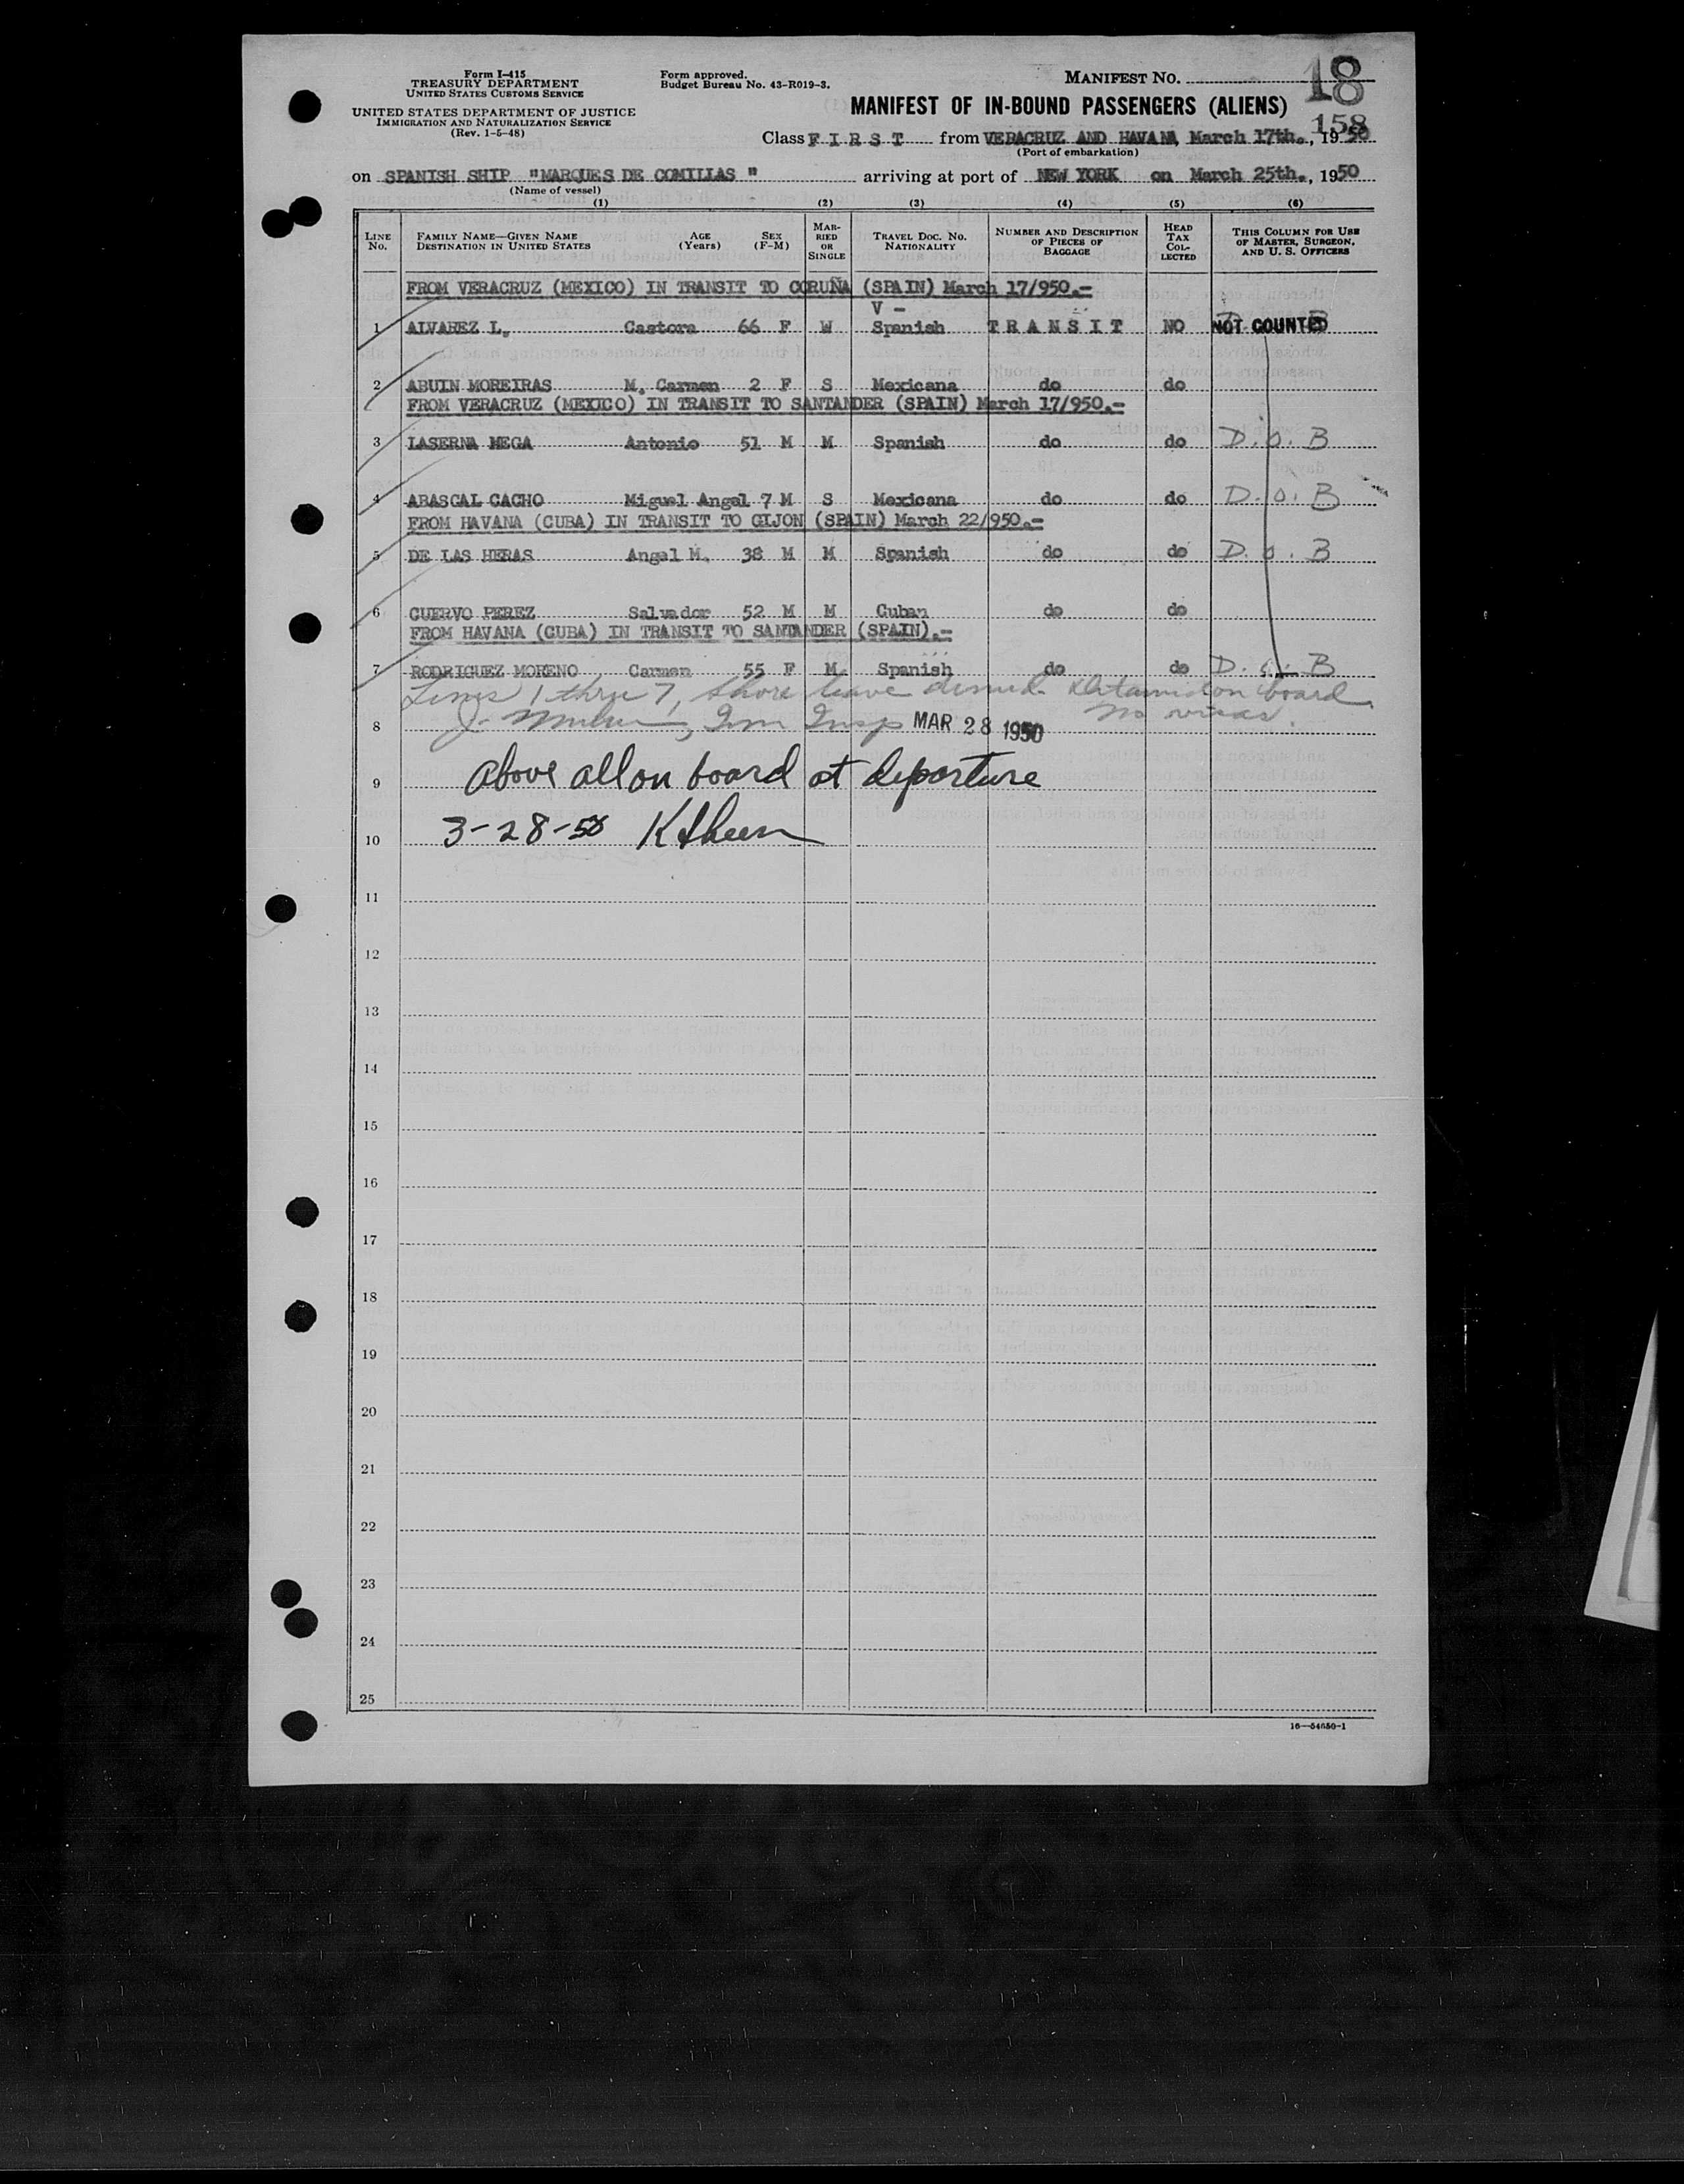 Form I-415
TREASURY DEPARTMENT
UNITED STATES CUSTOMS SERVICE
UNITED STATES DEPARTMENT OF JUSTICE
IMMIGRATION AND NATURALIZATION SERVICE
(Rev. 1-5-48)
Form approved.
Budget Bureau No. 43-R019-3.
MANIFEST NO. 18
MANIFEST OF IN-BOUND PASSENGERS (ALIENS)
158
Class F I R S T from VERACRUZ AND HAVANA, March 17th., 1950
(Port of embarkation)
on SPANISH SHIP "MARQUES DE COMILLAS" arriving at port of NEW YORK on March 25th., 1950
(Name of vessel)
(1) (2) (3) (4) (5) (6)
LINE NO. FAMILY NAME—GIVEN NAME DESTINATION IN UNITED STATES AGE (Years) SEX (F-M) MARRIED OR SINGLE TRAVEL DOC. NO. NATIONALITY NUMBER AND DESCRIPTION OF PIECES OF BAGGAGE HEAD TAX COLLECTED THIS COLUMN FOR USE OF MASTER, SURGEON, AND U. S. OFFICERS
FROM VERACRUZ (MEXICO) IN TRANSIT TO CORUÑA (SPAIN) March 17/950.-
V -
1 ALVAREZ L. Castora 66 F W Spanish T R A N S I T NO NOT COUNTED
2 ABUIN MOREIRAS M. Carmen 2 F S Mexicana do do
FROM VERACRUZ (MEXICO) IN TRANSIT TO SANTANDER (SPAIN) March 17/950.-
3 LASERNA MEGA Antonio 51 M M Spanish do do D.O.B
4 ABASCAL CACHO Miguel Angel 7 M S Mexicana do do D.O.B
FROM HAVANA (CUBA) IN TRANSIT TO GIJON (SPAIN) March 22/950.-
5 DE LAS HERAS Angel M. 38 M M Spanish do do D.O.B
6 CUERVO PEREZ Salvador 52 M M Cuban do do
FROM HAVANA (CUBA) IN TRANSIT TO SANTANDER (SPAIN).-
7 RODRIGUEZ MORENO Carmen 55 F M. Spanish do do D.O.B
Lines 1 thru 7, shore leave denied. Detained on board
No visas.
8 J. Imm Insp MAR 28 1950
9 Above all on board at departure
10 3-28-50
11
12
13
14
15
16
17
18
19
20
21
22
23
24
25
16—54650-1